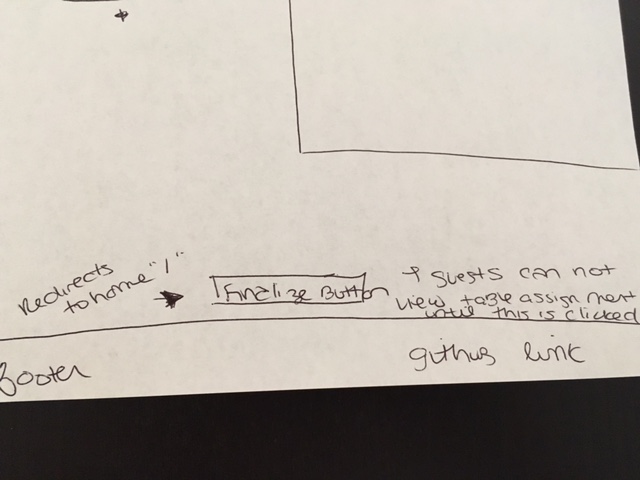 Redirects
to home "/"
Finalize Button
* guests can not
view table assignment
until this is clicked
footer
github link